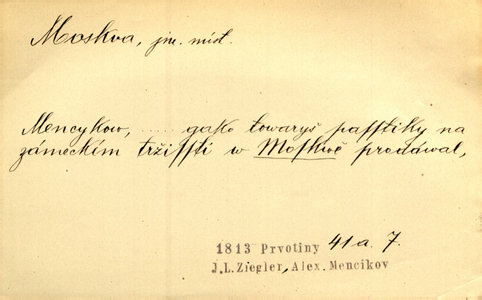 Moskva, jm. míst.
Mencykow, .... gako towaryš pafftiky na
zámeckím tržiffti w Mofkwě prodáwal,
1813 Prvotiny 41a. 7.
J.L.Ziegler, Alex. Mencikov